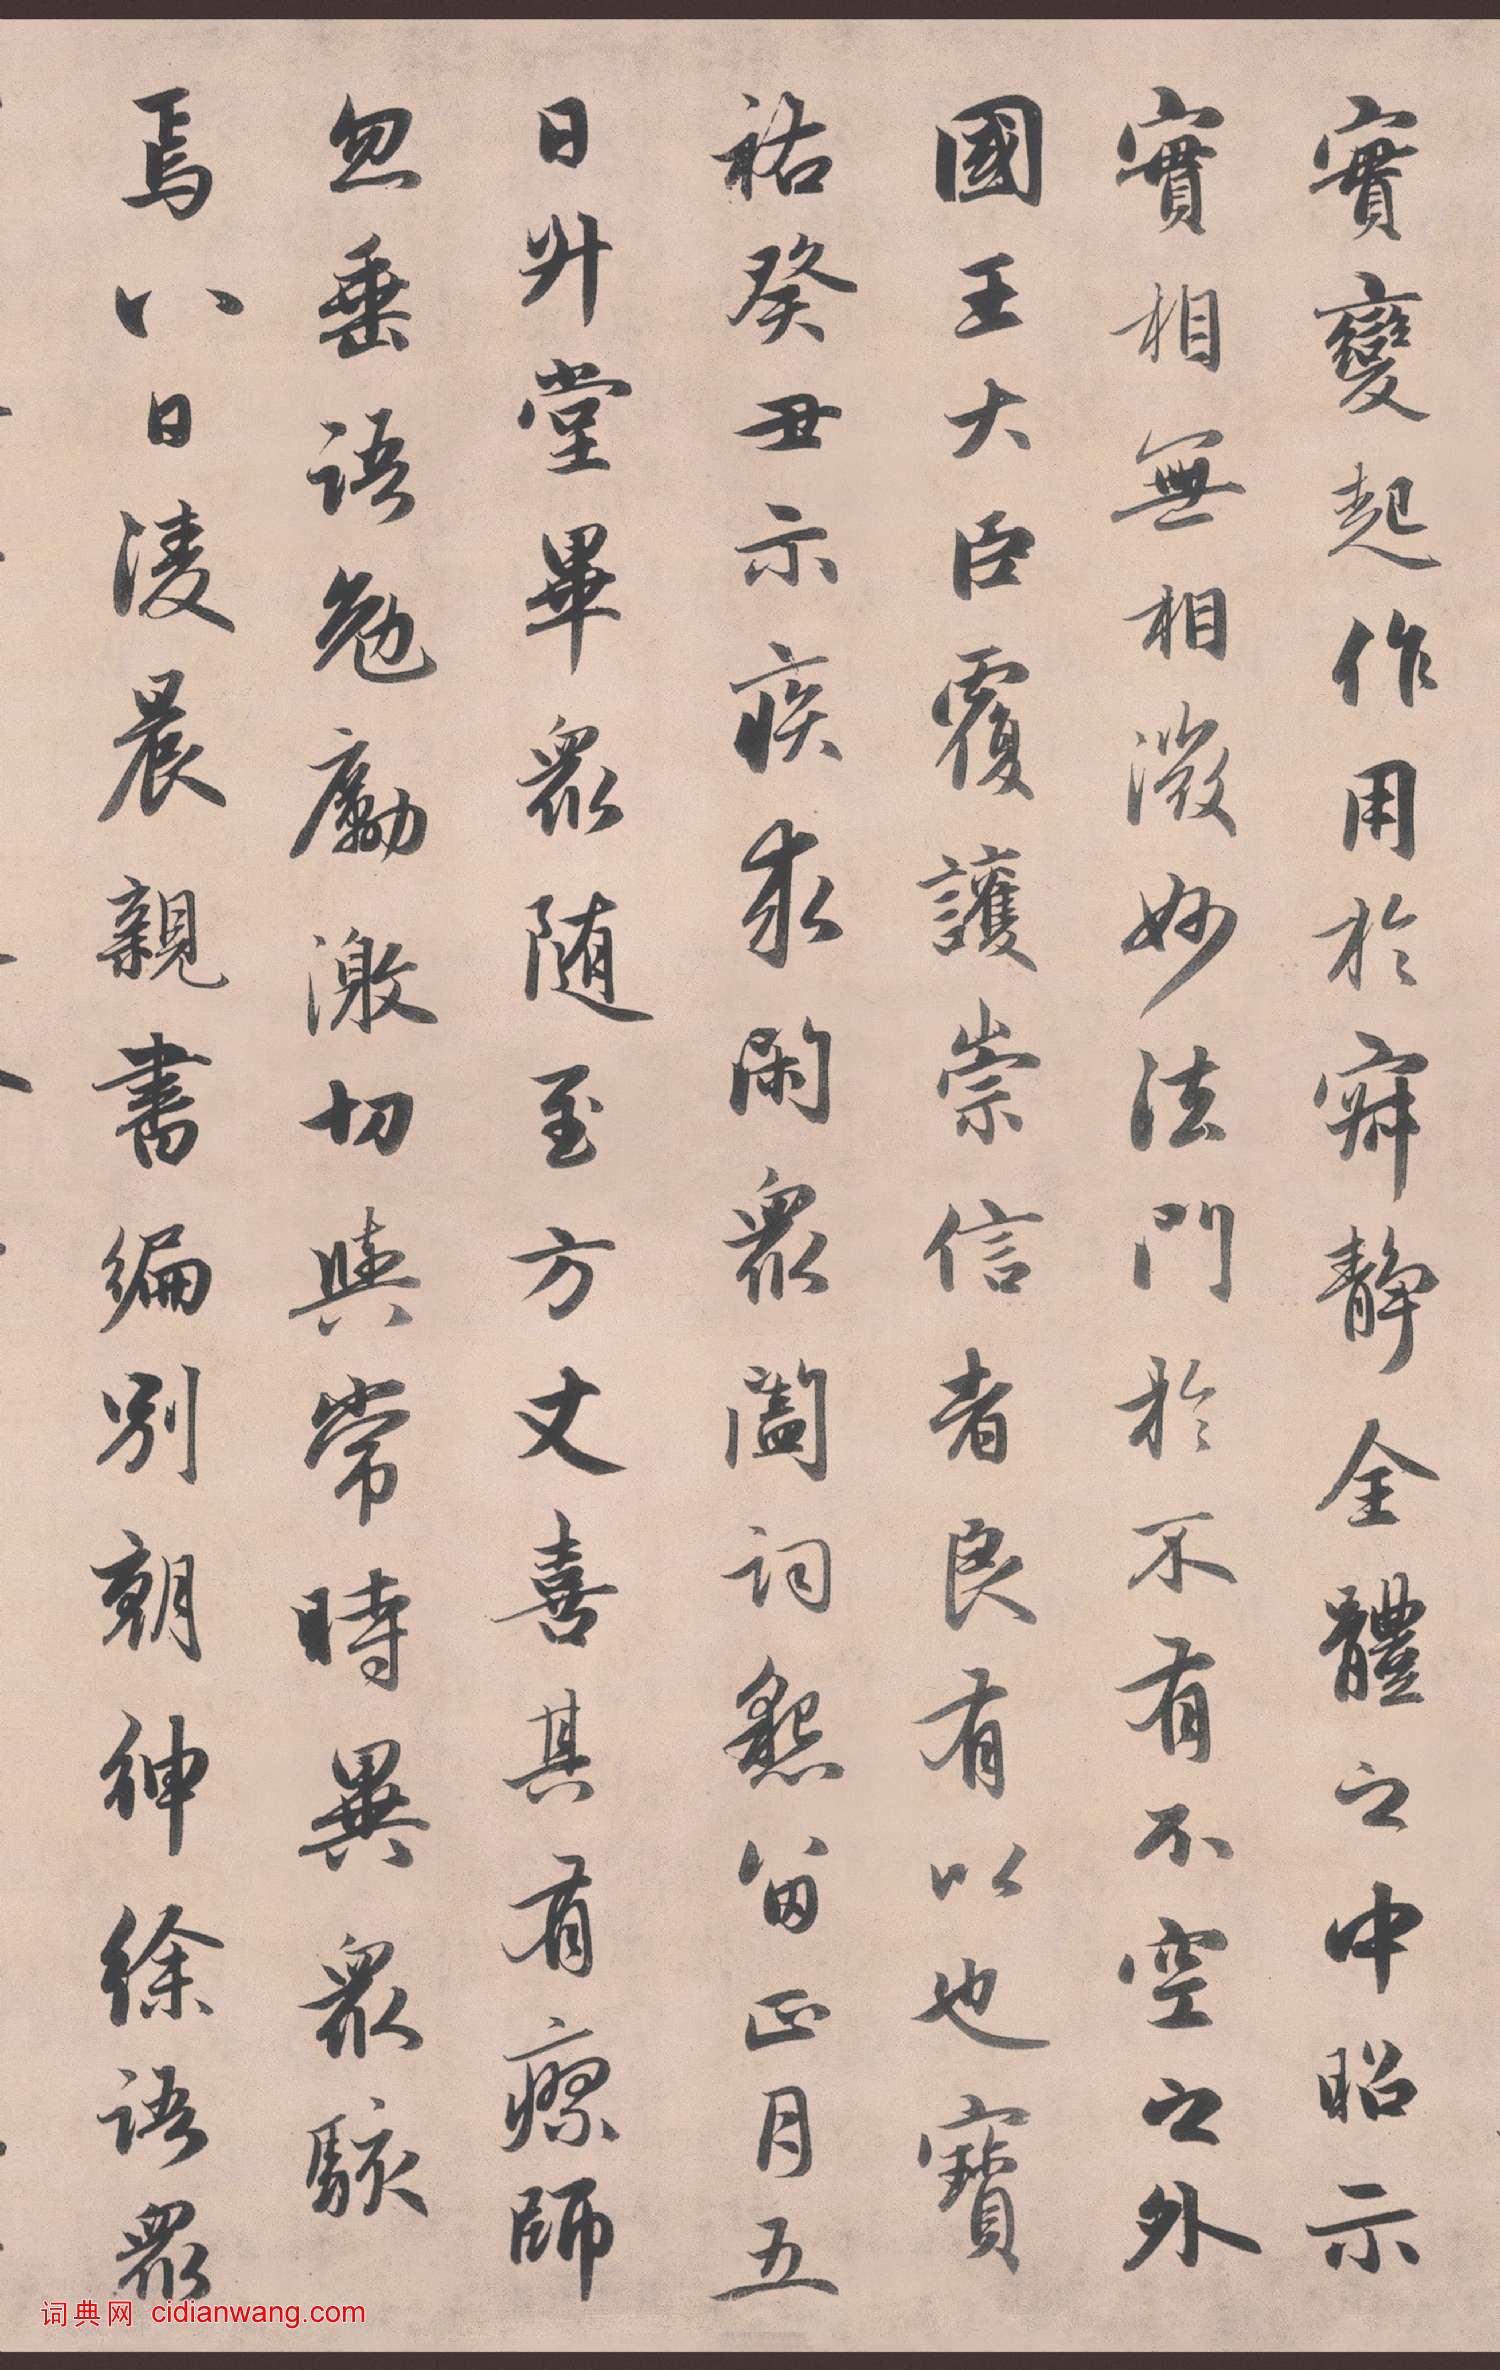 實變起作用於寂靜全體之中昭示
實相無相微妙法門於不有不空之外
國王大臣覆護崇信者良有以也寶
祐癸丑示疾求閑衆闔詞懇留正月五
日升堂畢衆随至方丈喜其有瘳師
忽垂語勉勵激切與常時異衆駭
焉八日淩晨親書編别朝紳徐語衆
词典网 cidianwang.com